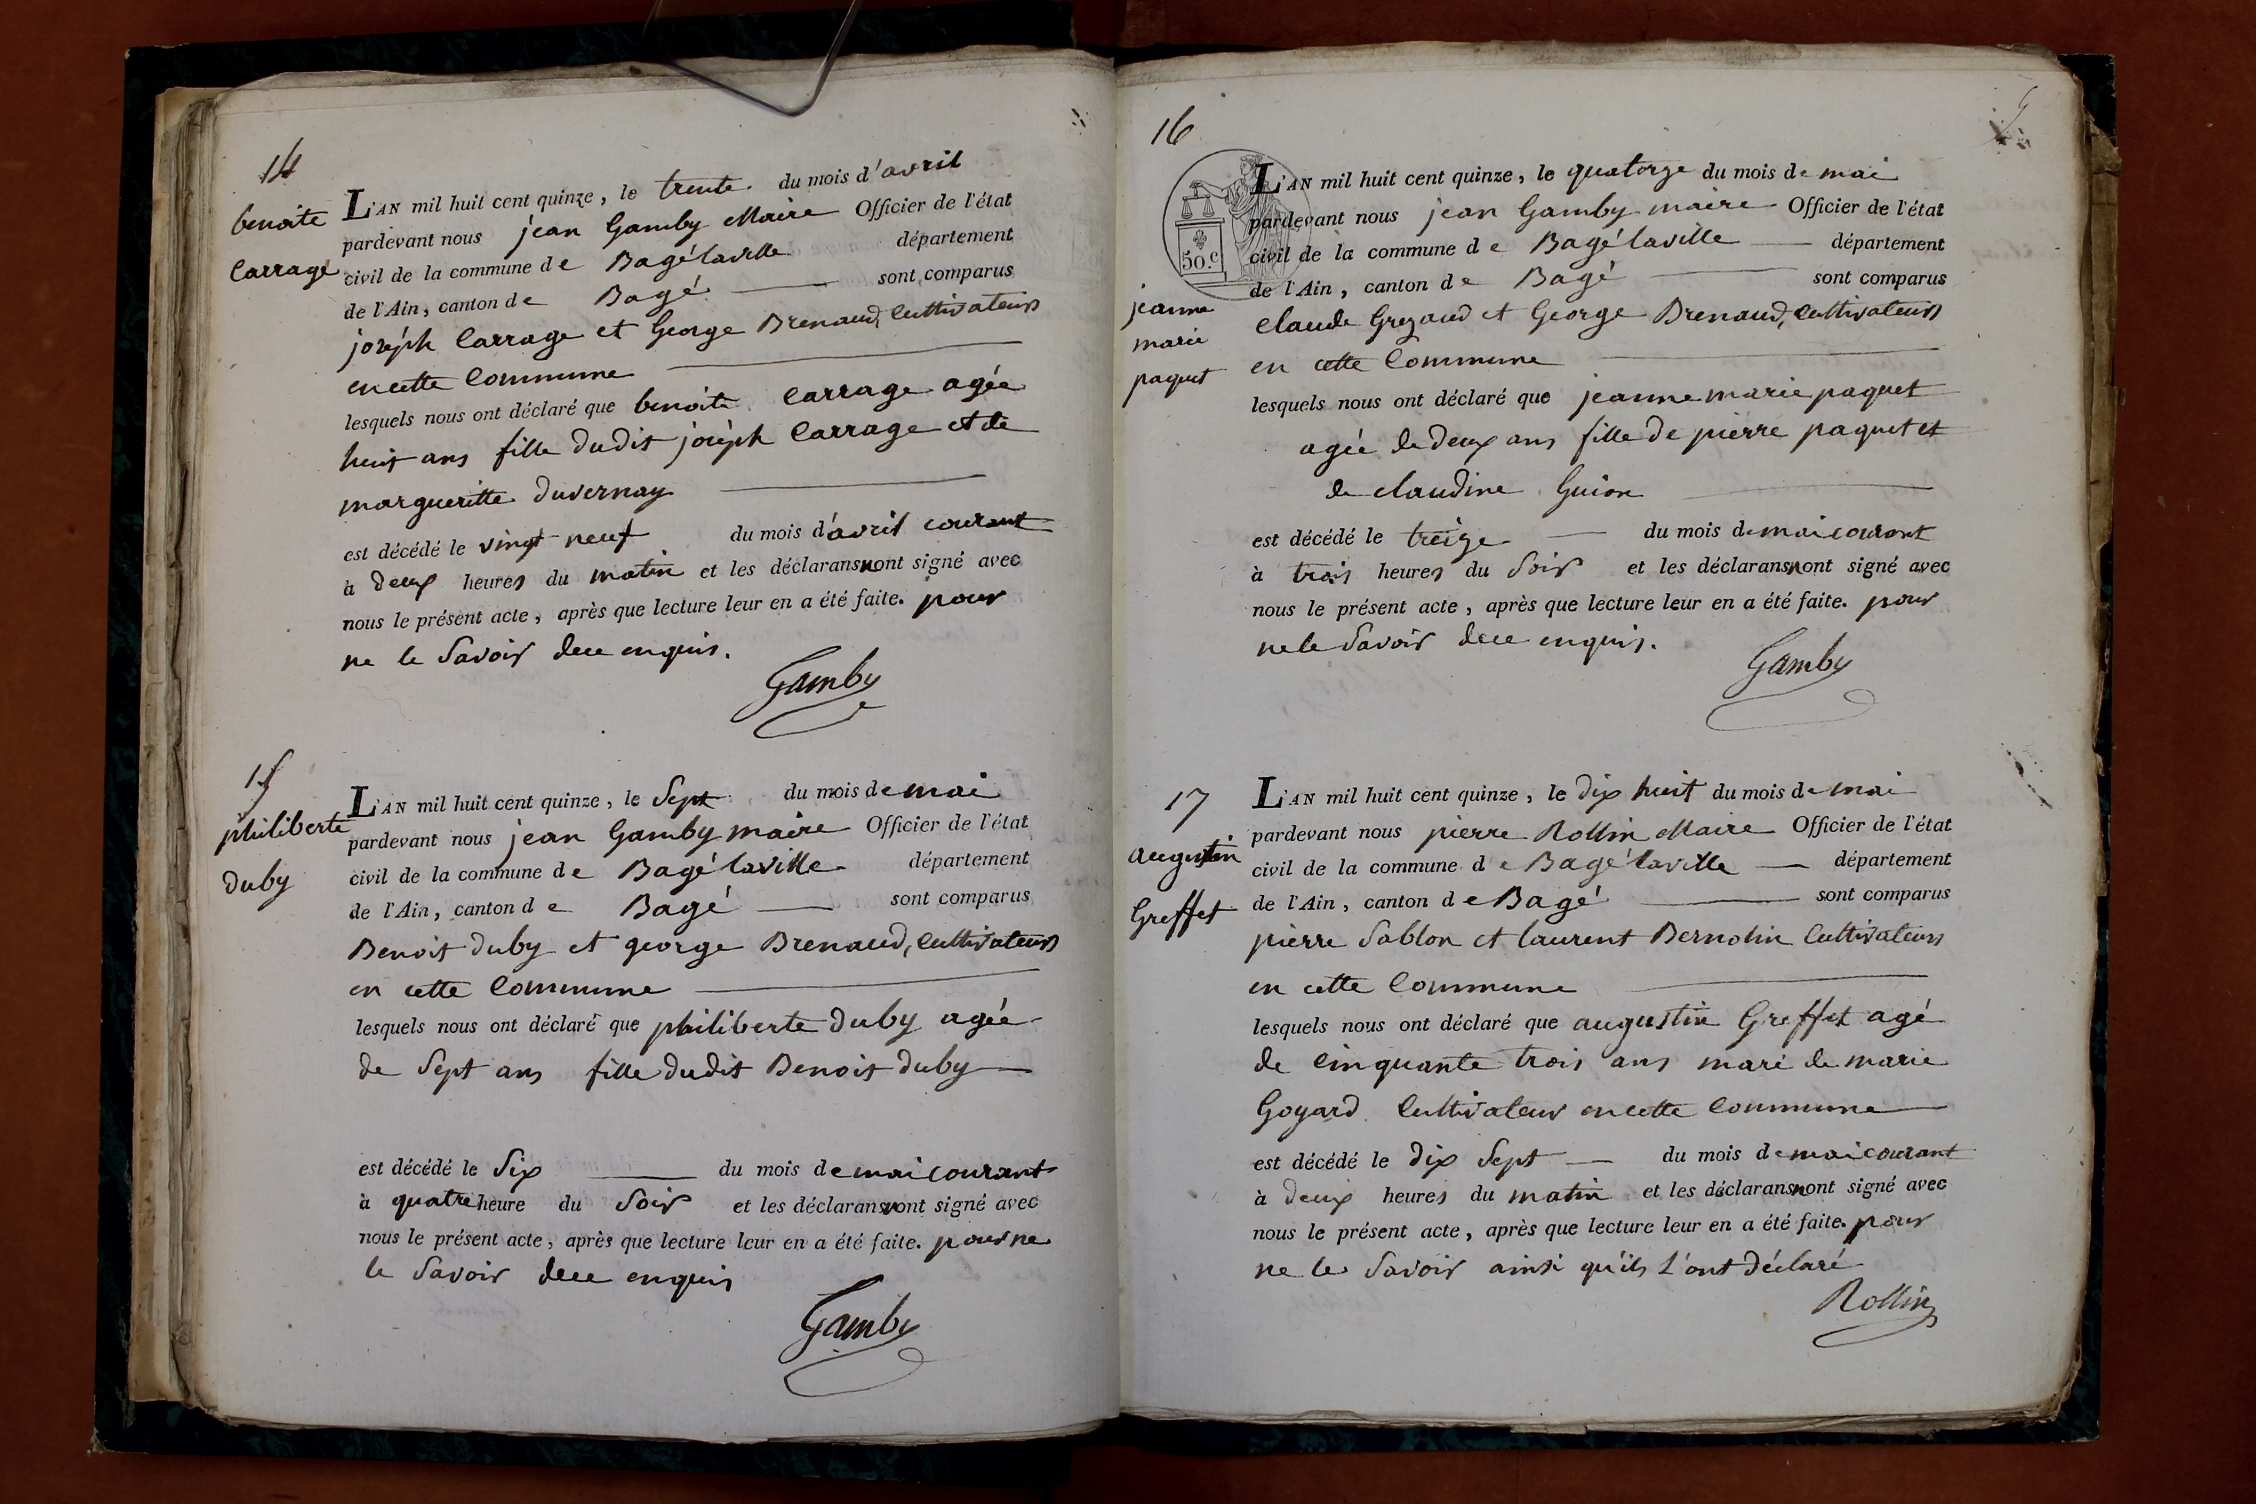 14
benoite
Carrage
L'AN mil huit cent quinze, le trente du mois d'avril
pardevant nous jean Gamby Maire Officier de l'état
civil de la commune de Bagélaville département
de l'Ain, canton de Bagé sont comparus
joséph Carrage et George Brenaud, Cultivateurs
en cette Commune
lesquels nous ont déclaré que benoite Carrage agée
huit ans fille dudit joséph Carrage et de
margueritte duvernay
est décédé le vingt-neuf du mois d'avril courant
à deux heures du matin et les déclarans nont signé avec
nous le présent acte, après que lecture leur en a été faite. pour
ne le Savoir de ce enquis.
Gamby
15
philiberte
duby
L'AN mil huit cent quinze, le Sept du mois de mai
pardevant nous jean Gamby maire Officier de l'état
civil de la commune de Bagélaville département
de l'Ain, canton de Bagé sont comparus
Benoit duby et george Brenaud, Cultivateurs
en cette Commune
lesquels nous ont déclaré que philiberte duby agée
de Sept ans fille dudit Benoit duby
est décédé le Six du mois de mai courant
à quatre heure du Soir et les déclarans nont signé avec
nous le présent acte, après que lecture leur en a été faite. pour ne
le Savoir de ce enquis
Gamby
16
50.c
jeanne
marie
paquet
L'AN mil huit cent quinze, le quatorze du mois de mai
pardevant nous jean Gamby maire Officier de l'état
civil de la commune de Bagélaville département
de l'Ain, canton de Bagé sont comparus
Claude Grezaud et George Brenaud, Cultivateurs
en cette Commune
lesquels nous ont déclaré que jeanne marie paquet
agée de deux ans fille de pierre paquet et
de claudine Guion
est décédé le treize du mois de mai courant
à trois heures du Soir et les déclarans nont signé avec
nous le présent acte, après que lecture leur en a été faite. pour
ne le Savoir de ce enquis.
Gamby
17
augustin
Greffet
L'AN mil huit cent quinze, le dix huit du mois de mai
pardevant nous pierre Rollin Maire Officier de l'état
civil de la commune de Bagélaville département
de l'Ain, canton de Bagé sont comparus
pierre Sablon et laurent Bernolin Cultivateurs
en cette Commune
lesquels nous ont déclaré que augustin Greffet agé
de Cinquante trois ans mari de marie
Goyard Cultivateur en cette Commune
est décédé le dix Sept du mois de mai courant
à deux heures du matin et les déclarans nont signé avec
nous le présent acte, après que lecture leur en a été faite. pour
ne le Savoir ainsi qu'ils l'ont déclaré
Rollin